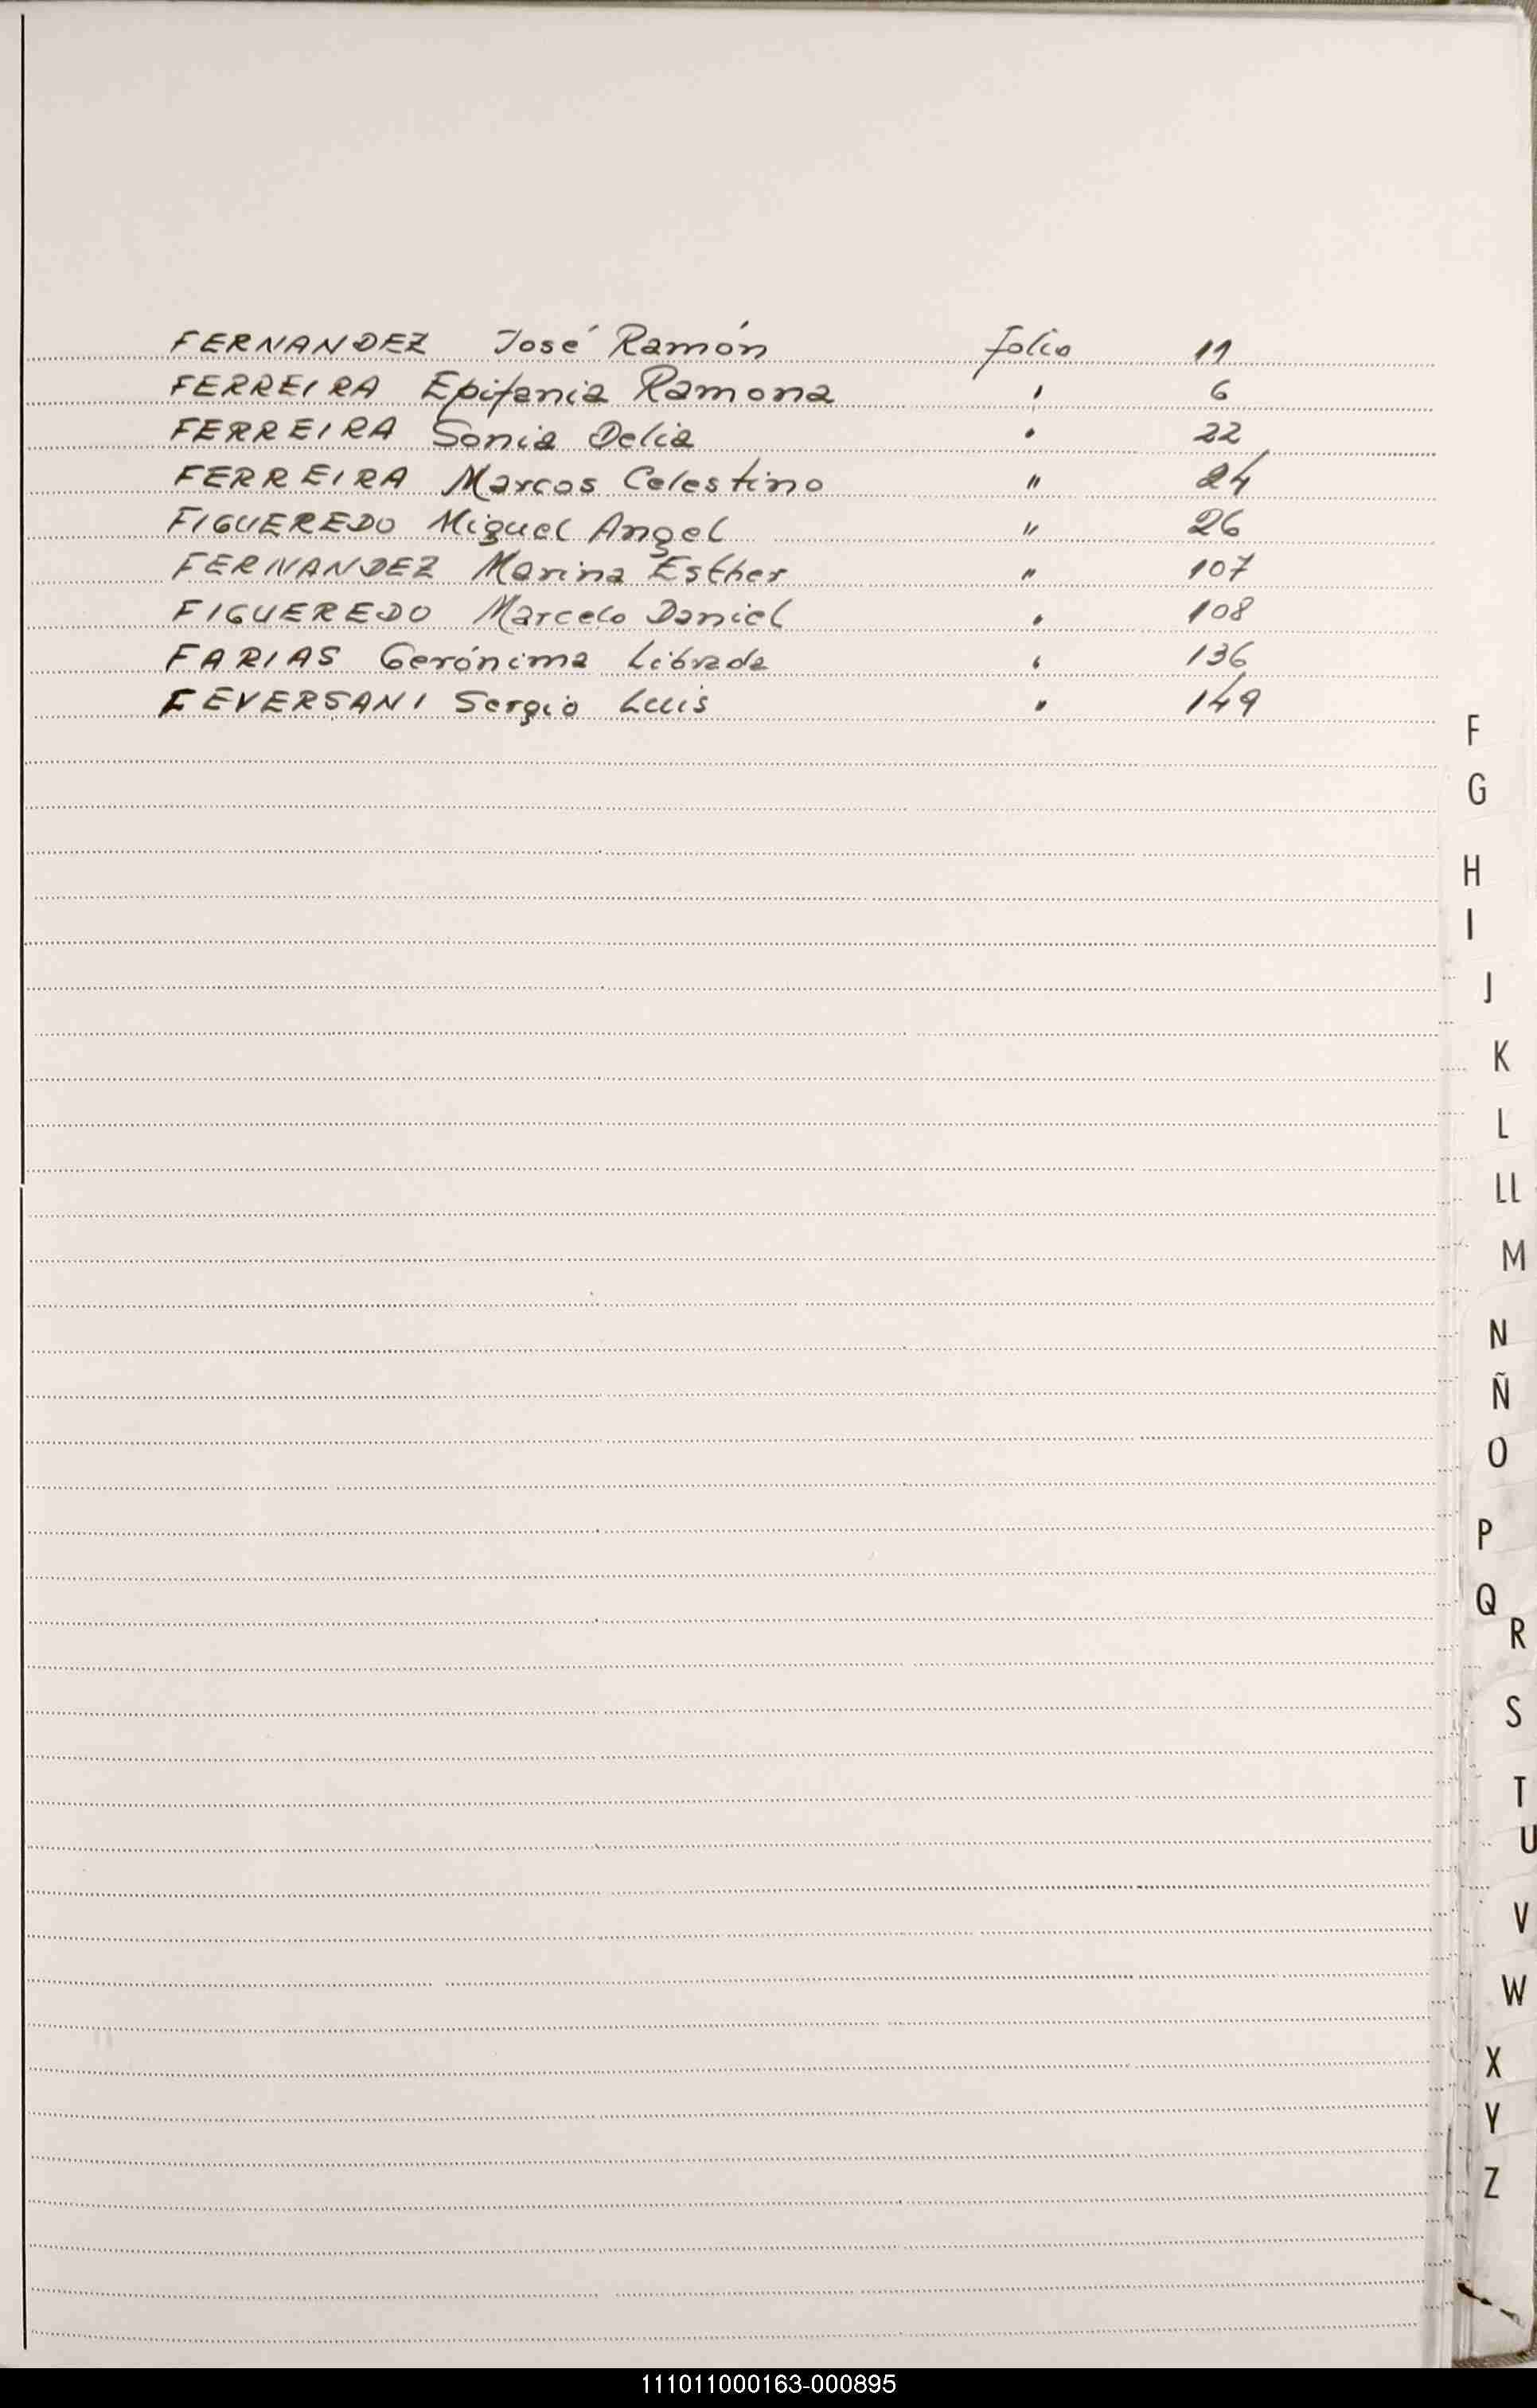 FERNANDEZ José Ramón folio 11
FERREIRA Epifania Ramona " 6
FERREIRA Sonia Delia " 22
FERREIRA Marcos Celestino " 24
FIGUEREDO Miguel Angel " 26
FERNANDEZ Marina Esther " 107
FIGUEREDO Marcelo Daniel " 108
FARIAS Gerónima Librada " 136
FEVERSANI Sergio Luis " 149
F
G
H
I
J
K
L
LL
M
N
Ñ
O
P
Q
R
S
T
U
V
W
X
Y
Z
111011000163-000895